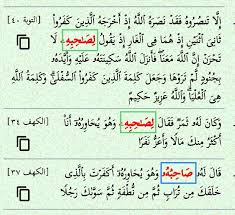 إِلَّا تَنصُرُوهُ فَقَدْ نَصَرَهُ ٱللَّهُ إِذْ أَخْرَجَهُ ٱلَّذِينَ كَفَرُواْ [التوبة ٤٠]
ثَانِىَ ٱثْنَيْنِ إِذْ هُمَا فِى ٱلْغَارِ إِذْ يَقُولُ لِصَـٰحِبِهِۦ لَا
تَحْزَنْ إِنَّ ٱللَّهَ مَعَنَا فَأَنزَلَ ٱللَّهُ سَكِينَتَهُۥ عَلَيْهِ وَأَيَّدَهُۥ
بِجُنُودٍ لَّمْ تَرَوْهَا وَجَعَلَ كَلِمَةَ ٱلَّذِينَ كَفَرُواْ ٱلسُّفْلَىٰ وَكَلِمَةُ ٱللَّهِ
هِىَ ٱلْعُلْيَا وَٱللَّهُ عَزِيزٌ حَكِيمٌ
وَكَانَ لَهُۥ ثَمَرٌ فَقَالَ لِصَـٰحِبِهِۦ وَهُوَ يُحَاوِرُهُۥٓ أَنَا۠ [الكهف ٣٤]
أَكْثَرُ مِنكَ مَالًا وَأَعَزُّ نَفَرًا
قَالَ لَهُۥ صَاحِبُهُۥ وَهُوَ يُحَاوِرُهُۥٓ أَكَفَرْتَ بِٱلَّذِى [الكهف ٣٧]
خَلَقَكَ مِن تُرَابٍ ثُمَّ مِن نُّطْفَةٍ ثُمَّ سَوَّىٰكَ رَجُلًا